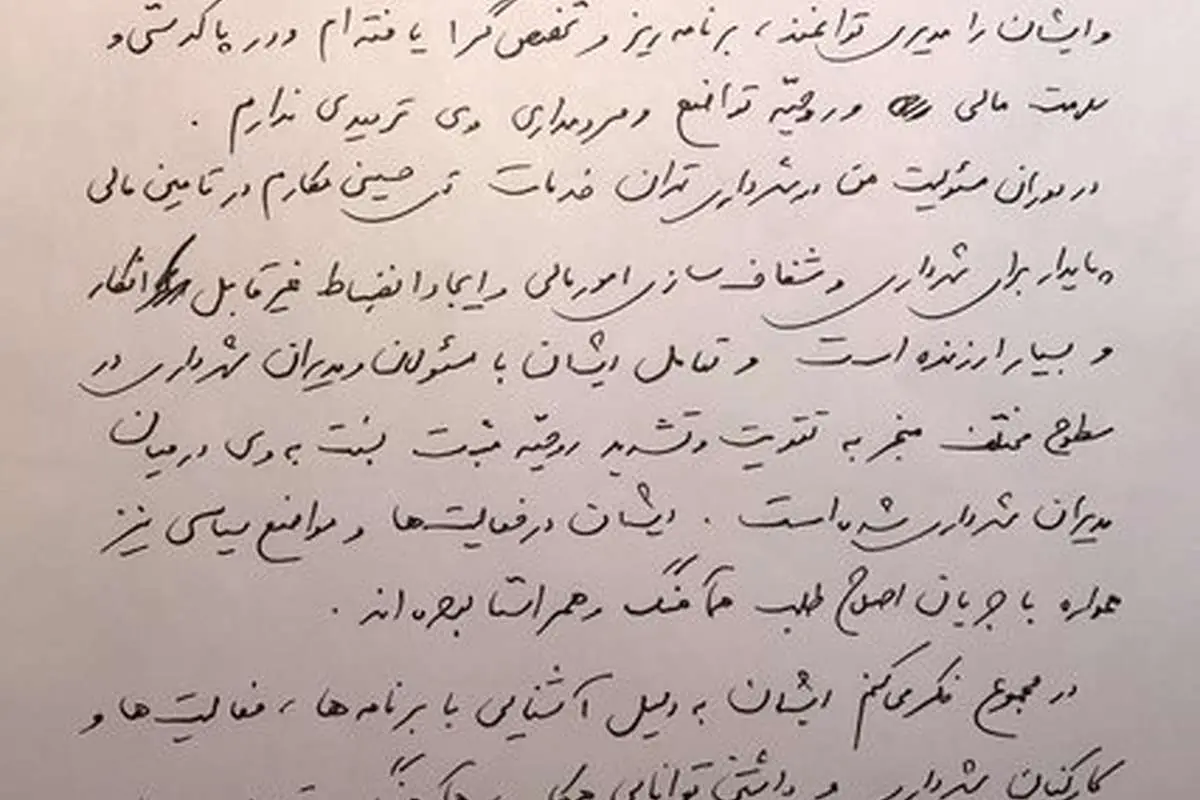 و ایشان را مدیری توانمند، برنامه ریز و تخصص گرا یافته ام و در پاکدستی و
سلامت مالی و روحیّه تواضع و مردمداری وی تردیدی ندارم .
در دوران مسئولیت من در شهرداری تهران خدمات آقای حسینی مکارم در تامین مالی
پایدار برای شهرداری و شفاف سازی امور مالی و ایجاد انضباط غیر قابل انکار
و بسیار ارزنده است و تعامل ایشان با مسئولان و مدیران شهرداری در
سطوح مختلف منجر به تقویت و تشدید روحیّه مثبت نسبت به وی در میان
مدیران شهرداری شده است . ایشان در فعالیت‌ها و مواضع سیاسی نیز
همواره با جریان اصلاح طلب هماهنگ و هم راستا بوده اند .
در مجموع فکر می‌کنم ایشان به دلیل آشنایی با برنامه ها ، فعالیت‌ها و
کارکنان شهرداری و داشتن توانایی